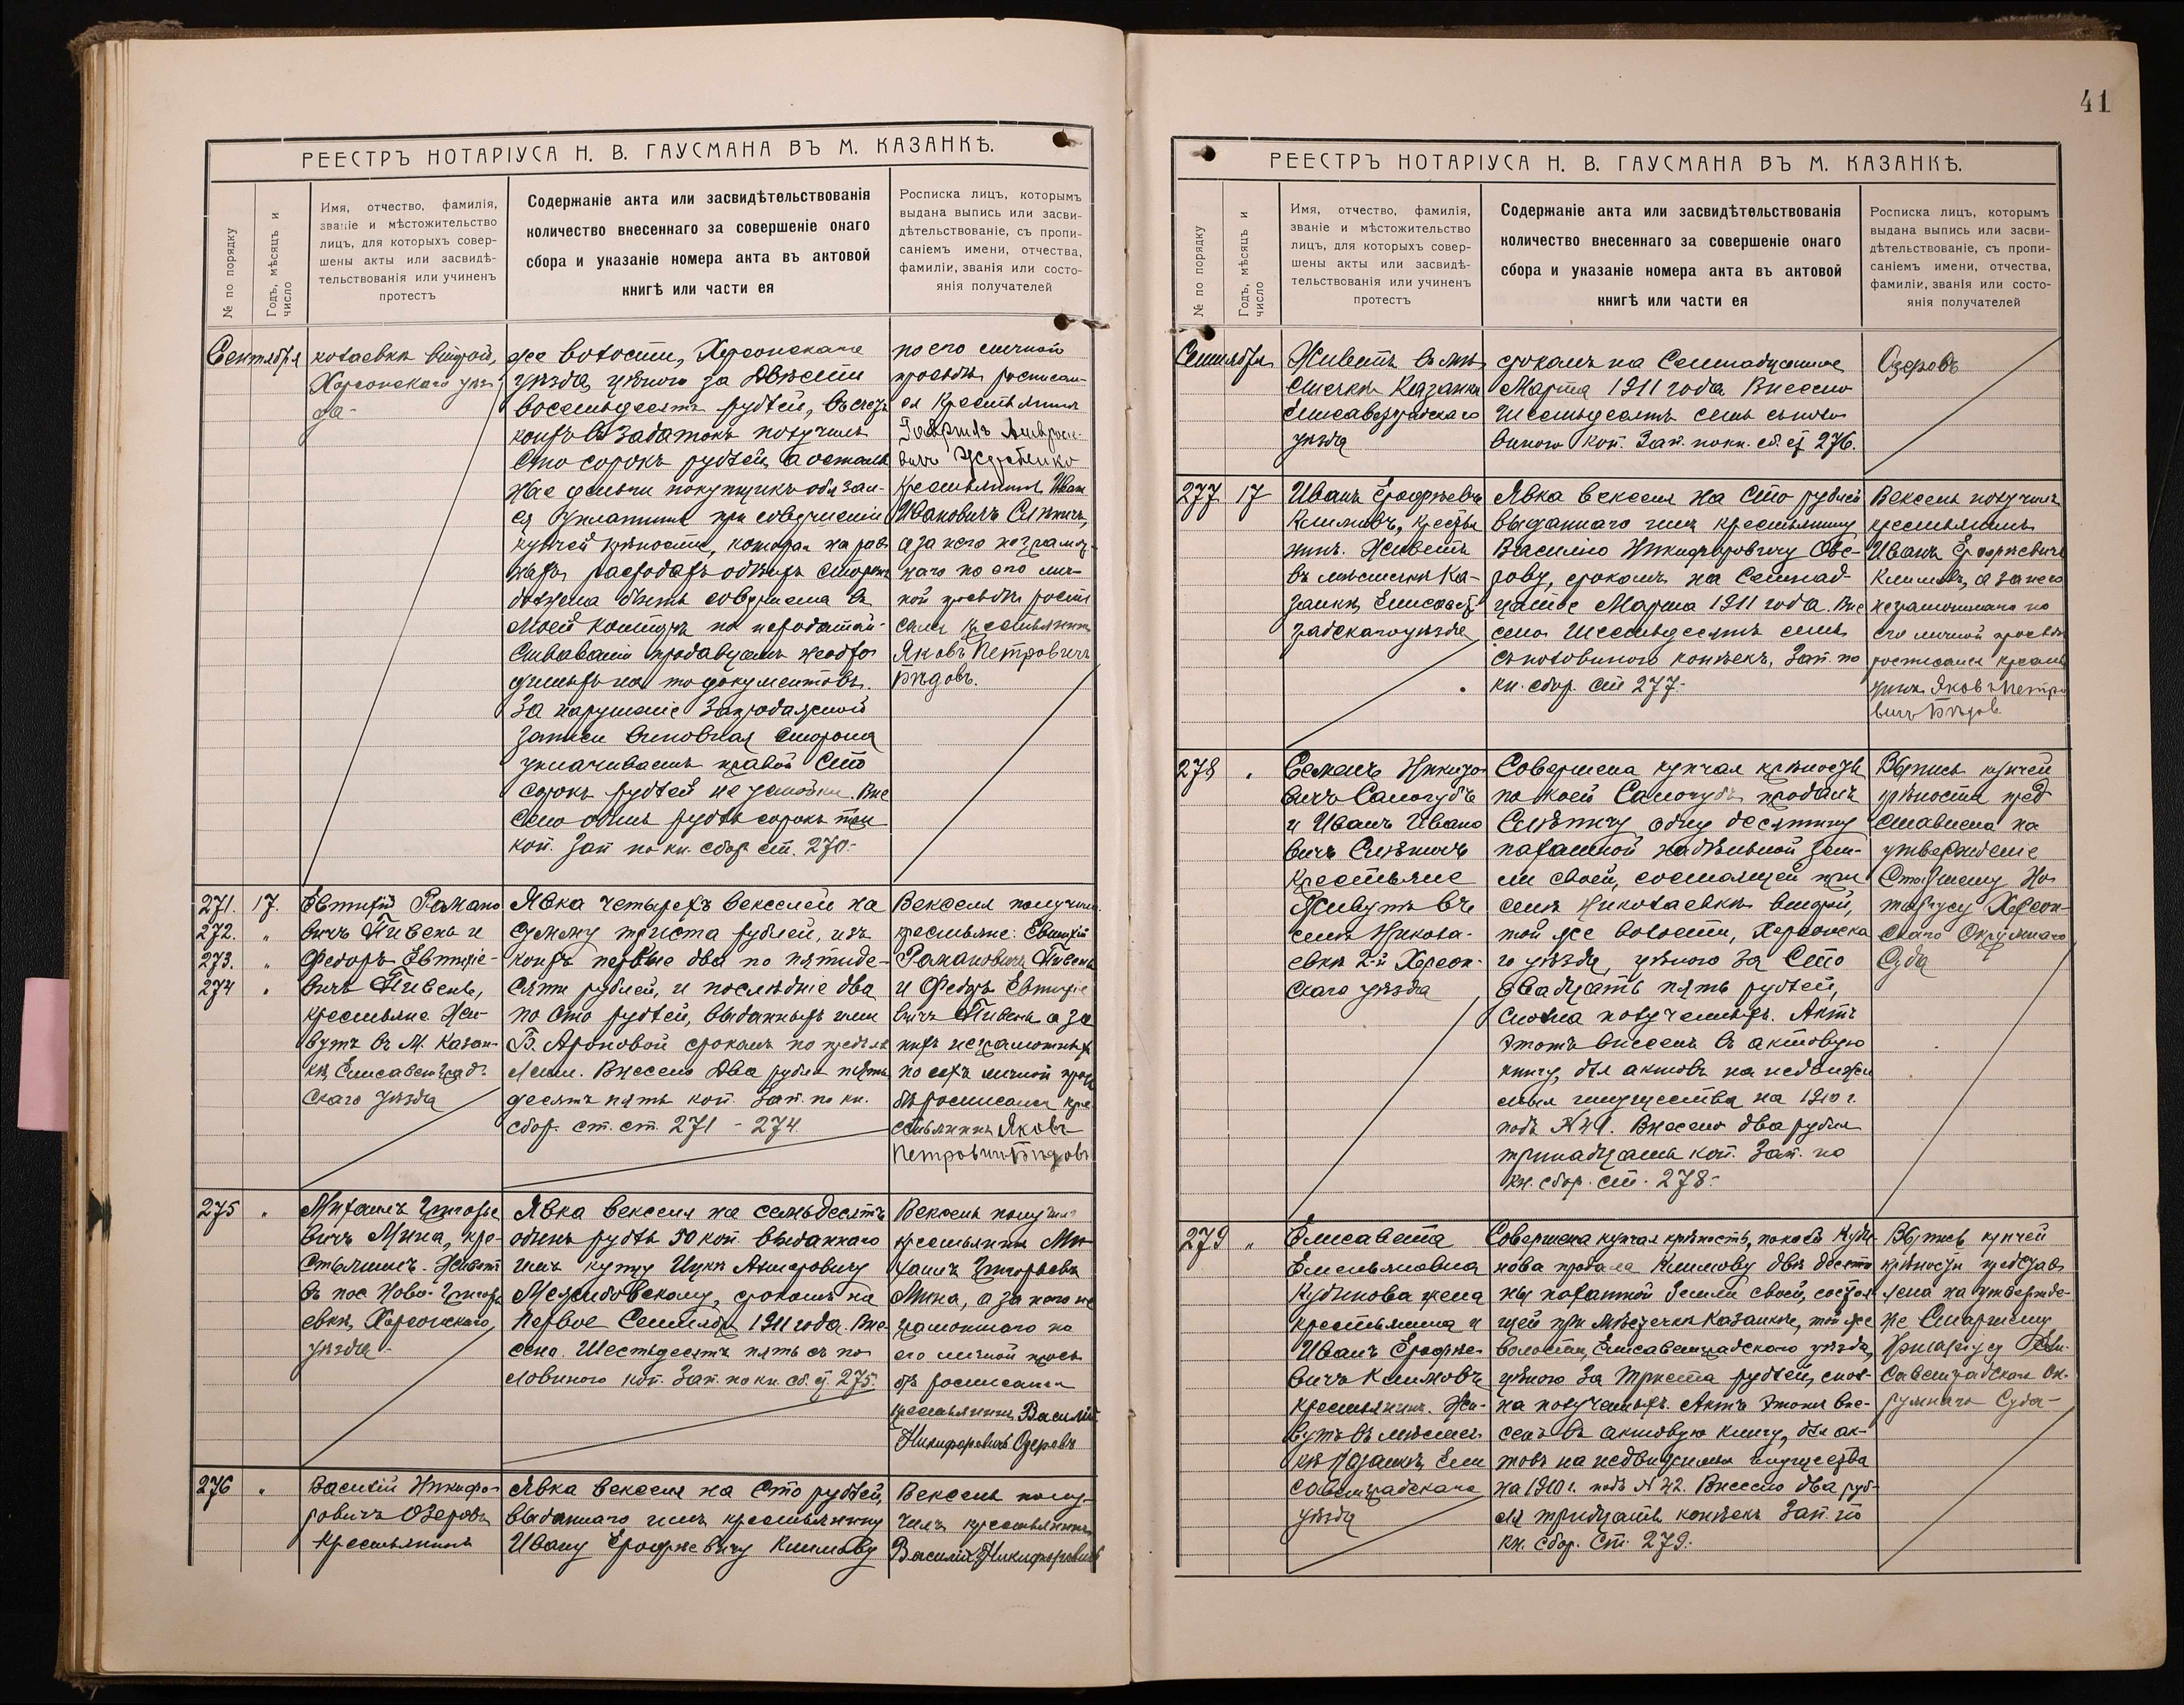 РЕЕСТРЪ НОТАРІУСА Н. В. ГАУСМАНА ВЪ М. КАЗАНКѢ.
№ по порядку
Годъ, мѣсяцъ и
число
Имя, отчество, фамилія,
званіе и мѣстожительство
лицъ, для которыхъ совер-
шены акты или засвидѣ-
тельствованія или учиненъ
протестъ
Содержаніе акта или засвидѣтельствованія
количество внесеннаго за совершеніе онаго
сбора и указаніе номера акта въ актовой
книгѣ или части ея
Росписка лицъ, которымъ
выдана выпись или засви-
дѣтельствованіе, съ пропи-
саніемъ имени, отчества,
фамиліи, званія или состо-
янія получателей
Сентября
колаевкѣ второй,
Херсонскаго уѣз-
да-
же волости, Херсонскаго
уѣзда, цѣною за Двѣсти
восемьдесятъ рублей, въ счетъ
коихъ въ задатокъ получилъ
Сто сорокъ рублей, а осталь
ныя деньги покупщикъ обязан-
ся уплатить при совершеніи
купчей крѣпости, которая на рав
ныхъ расходахъ обѣихъ сторонъ
должна быть совершена въ
моей конторѣ по
продавцемъ необхо
димыхъ на то документовъ.
За нарушеніе Запродажной
записи виновная сторона
уплачиваетъ правой Сто
сорокъ рублей неустойки. Вне
сено одинъ рубль сорокъ
коп. Зап. по кн. сбор. ст. 270.-
по его личной
просьбѣ росписал-
ся Крестьянинъ
Гавриилъ
вичъ
крестьянинъ Иван
Ивановичъ Слѣпичъ,
а за него неграмот-
наго по его лич-
ной просьбѣ роспи
сался крестьянинъ
Яковъ Петровичъ
Бѣдовъ.
271. 17.
272. "
273. "
274 "
Евтихій Романо
вичъ Пивень и
Федоръ Евтихіе-
вичъ Пивень,
крестьяне. Жи-
вутъ въ М. Казан-
кѣ, Елисаветград-
скаго уѣзда
Явка четырехъ векселей на
сумму триста рублей, изъ
коихъ первые два по пятиде-
сяти рублей, и послѣдніе два
по сто рублей, выданныхъ ими
Б. Ароновой срокомъ по предъяв
леніи. Внесено Два рубля пять
десятъ пять коп. Зап. по кн.
сбор. ст. ст. 271 - 274
Векселя получили
крестьяне: Евтихій
Романовичъ Пивень
и Федоръ Евтихіе
вичъ Пивень а за
нихъ неграмотныхъ
по ихъ личной прось
бѣ росписался кре
стьянинъ Яковъ
Петровичъ Бѣдовъ
275 "
Михаилъ Григорье
вичъ Мина, кре-
стьянинъ. Живетъ
въ пос. Ново-Григорь
евкѣ, Херсонскаго
уѣзда-
Явка векселя на семьдесятъ
одинъ рубль 50 коп. выданнаго
имъ купцу Ицку
срокомъ на
первое Сентября 1911 года. Вне
сено Шестьдесятъ пять съ по
ловиною коп. Зап. по кн. сб. ст 275.
Вексель получилъ
крестьянинъ Ми-
хаилъ Григорьевъ
Мина, а за него не
грамотнаго по
его личной прось
бѣ росписался
крестьянинъ Василій
Никифоровичъ Озеровъ
276 "
Василій Никифо-
ровичъ Озеровъ
крестьянинъ
Явка векселя на Сто рублей,
выданнаго имъ крестьянину
Ивану Ерофѣевичу Климову
Вексель полу-
чилъ крестьянинъ
Василій Никифоровичъ
41
РЕЕСТРЪ НОТАРІУСА Н. В. ГАУСМАНА ВЪ М. КАЗАНКѢ.
№ по порядку
Годъ, мѣсяцъ и
число
Имя, отчество, фамилія,
званіе и мѣстожительство
лицъ, для которыхъ совер-
шены акты или засвидѣ-
тельствованія или учиненъ
протестъ
Содержаніе акта или засвидѣтельствованія
количество внесеннаго за совершеніе онаго
сбора и указаніе номера акта въ актовой
книгѣ или части ея
Росписка лицъ, которымъ
выдана выпись или засви-
дѣтельствованіе, съ пропи-
саніемъ имени, отчества,
фамиліи, званія или состо-
янія получателей
Сентября
Живетъ въ мѣ
стечкѣ Казанкѣ
Елисаветградскаго
уѣзда
срокомъ на Семнадцатое
Марта 1911 года Внесено
Шестьдесятъ семь съ поло
виною коп. Зап. по кн. сб. ст 276.
Озеровъ
277 17
Иванъ Ерофѣевичъ
Климовъ, крестья
нинъ. Живетъ
въ мѣстечкѣ Ка-
занкѣ, Елисавет
градскаго уѣзда
Явка векселя на Сто рублей
выданнаго имъ крестьянину
Василію Никифоровичу Озе-
рову, срокомъ на Семнад-
цатое Марта 1911 года. Вне
сено Шестьдесятъ семь
съ половиною копѣекъ, Зап. по
кн. сбор. ст 277.-
Вексель получилъ
крестьянинъ
Иванъ Ерофѣевичъ
Климовъ, а за него
неграмотнаго по
его личной просьбѣ
росписался кресть
нинъ Яковъ Петро
вичъ Бѣдов
278 "
Семенъ
вичъ Самогубъ
и Иванъ Ивано
вичъ Слѣпичъ
Крестьяне
Живутъ въ
селѣ Никола-
евкѣ 2-й Херсон-
скаго уѣзда
Совершена купчая крѣпость
по коей Самогубъ продалъ
Слѣпичу одну десятину
пахатной надѣльной зем-
ли своей, состоящей при
селѣ Николаевкѣ второй,
той же волости, Херсонска
го уѣзда, цѣною за Сто
двадцать пять рублей,
сполна полученныхъ. Актъ
этотъ внесенъ въ актовую
книгу, для актовъ на недвижи
мыя имущества на 1910 г.
подъ №41. Внесено два рубля
тринадцать коп. Зап. по
кн. сбор. ст. 278.-
Выпись купчей
крѣпости пред
ставлена на
утвержденіе
Старшему Но
таріусу Херсон-
скаго Окружнаго
Суда
279 "
Елисавета
Емельяновна
Кубикова жена
крестьянина и
Иванъ Ерофѣе-
вичъ Климовъ
крестьянинъ. Жи-
вутъ въ мѣстеч-
кѣ Казанкѣ, Ели
саветградскаго
уѣзда
Совершена купчая крѣпость, по коей Куби-
кова продала Климову двѣ десяти
ны пахатной земли своей, состоя
щей при мѣстечкѣ Казанкѣ, той же
волости, Елисаветградскаго уѣзда,
цѣною за Триста рублей, спол-
на полученныхъ. Актъ этотъ вне-
сенъ въ актовую книгу, для ак-
товъ на недвижимыя имущества
на 1910 г. подъ № 42. Внесено два руб-
ля тридцать копѣекъ Зап. по
кн. сбор. ст. 279.
Выпись купчей
крѣпости представ
лена на утвержде-
ніе Старшему
Нотаріусу Ели-
саветградскаго Ок-
ружнаго Суда-